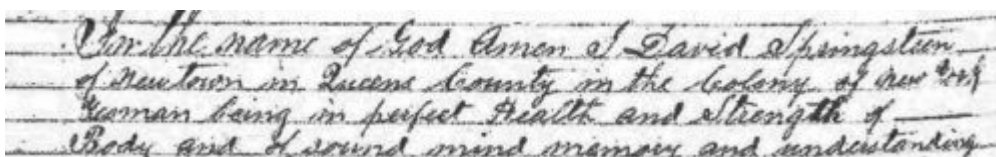 In the name of God Amen I David Springsteen
of Newtown in Queens County in the Colony of New York
Yeoman being in perfect Health and Strength of
Body and of sound mind memory and understanding